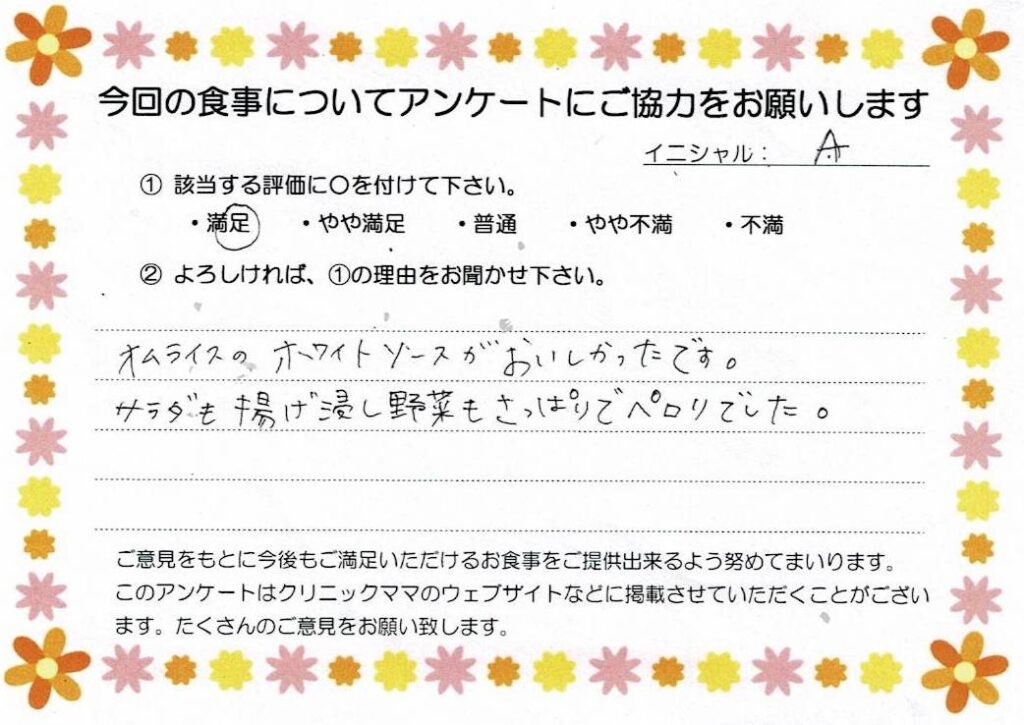 今回の食事についてアンケートにご協力をお願いします
イニシャル： A
① 該当する評価に〇を付けて下さい。
・満足 ・やや満足 ・普通 ・やや不満 ・不満
② よろしければ、①の理由をお聞かせ下さい。
オムライスの ホワイトソースが おいしかったです。
サラダも 揚げ浸し野菜も さっぱりで ペロリでした。
ご意見をもとに今後もご満足いただけるお食事をご提供出来るよう努めてまいります。
このアンケートはクリニックママのウェブサイトなどに掲載させていただくことがござい
ます。たくさんのご意見をお願い致します。